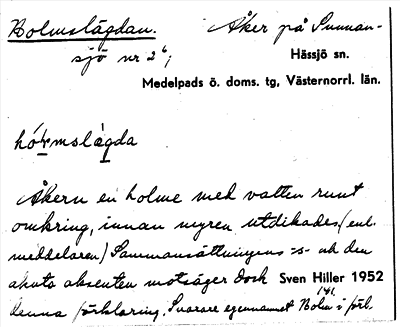 Bolmslägdan.
Åker på Sunnan-
sjö nr 2⁶;
Hässjö sn.
Medelpads ö. doms. tg, Västernorrl. län.
hó̵lmslägda
Åkern en holme med vatten runt
omkring, innan myren utdikades, (enl.
meddelaren.) Sammansättningens -s- och den
akuta aksenten motsäger dock
Sven Hiller 1952
denna förklaring. Snarare egennamnet Bolm i förl.